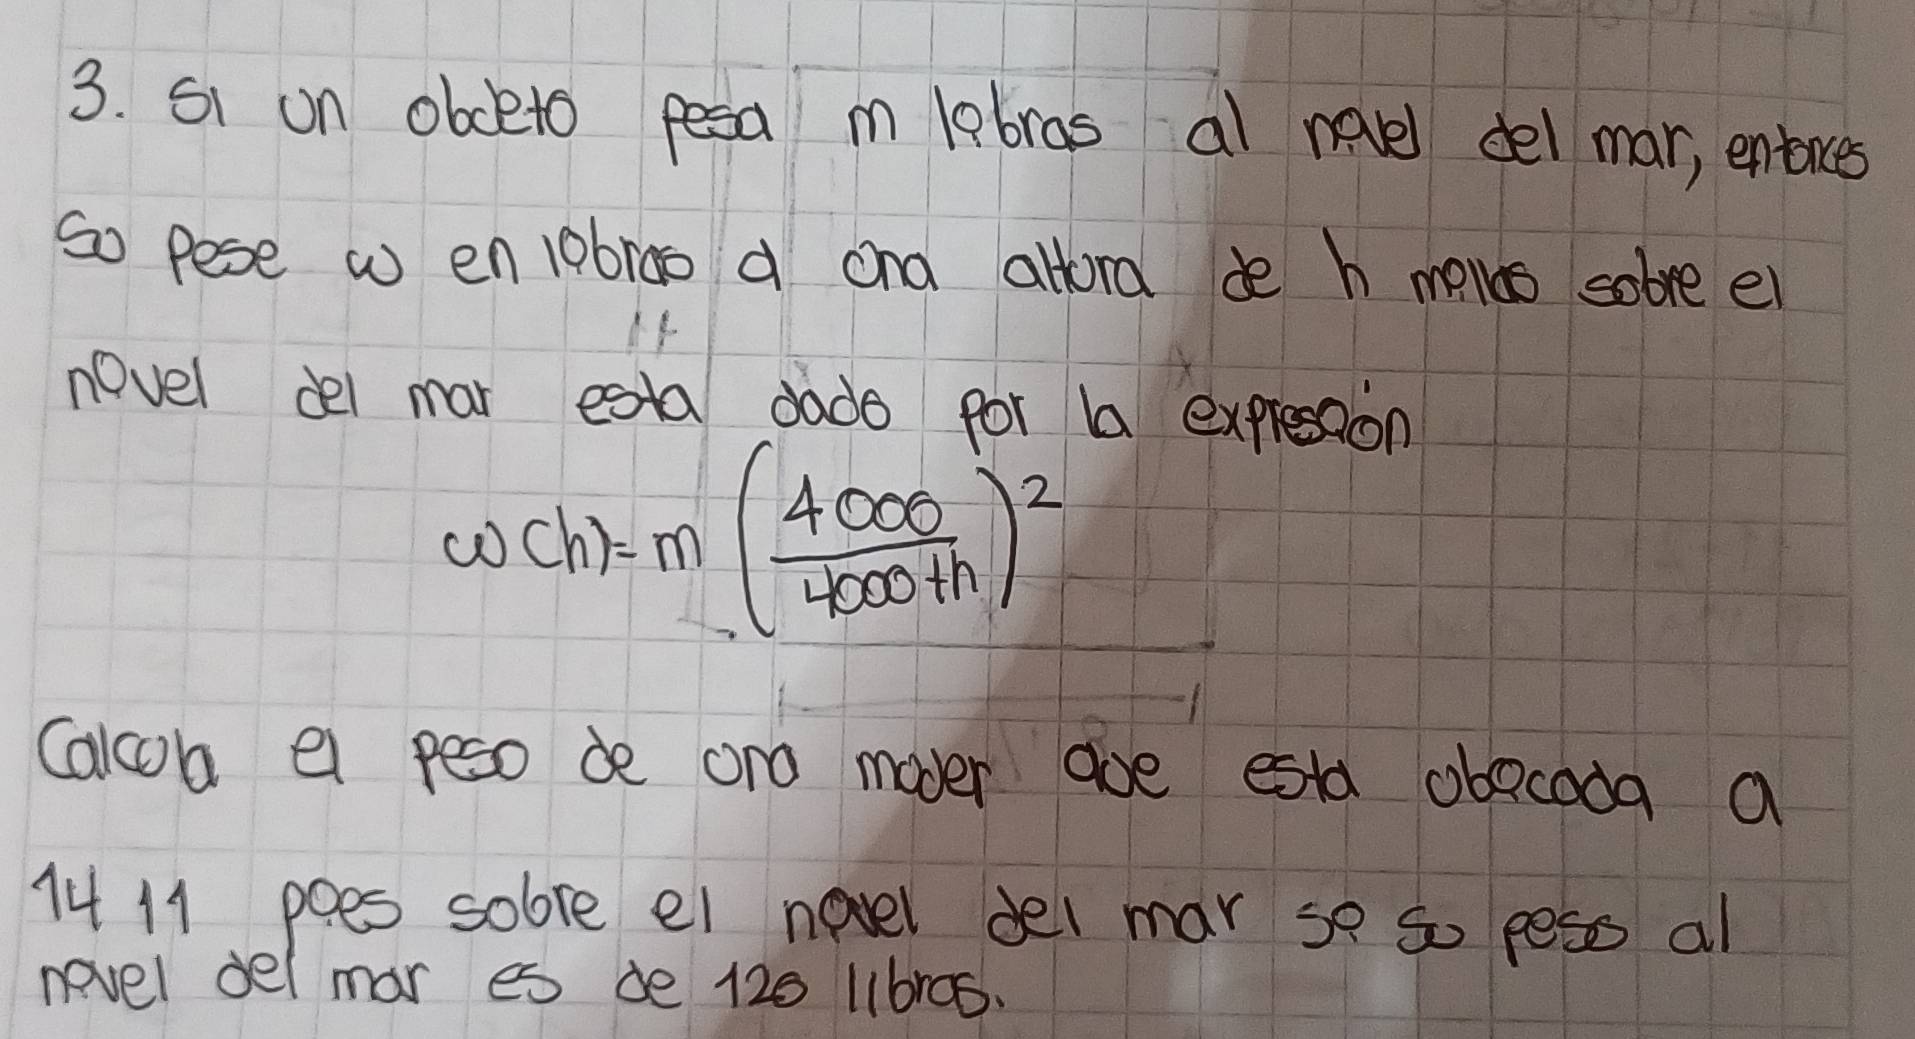 3. Si un objeto pesa m libras al nivel del mar, entonces
su pese w en libras a una altura de h millas sobre el
nivel del mar esta dado por la expresión
w(h)=m (4000/4000+h)²
Calcula el peso de una mujer que esta ubicada a
14 11 pies sobre el nivel del mar si su peso al
nivel del mar es de 120 libras.